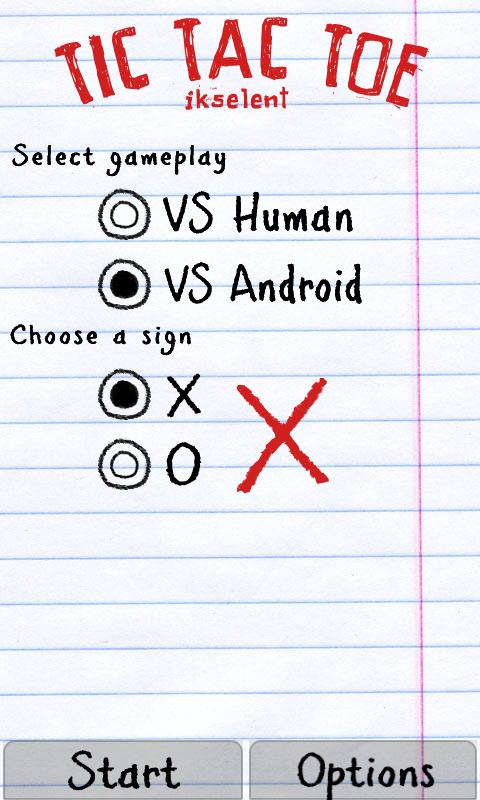 TIC TAC TOE
ikselent
Select gameplay
VS Human
VS Android
Choose a sign
X
O
Start
Options